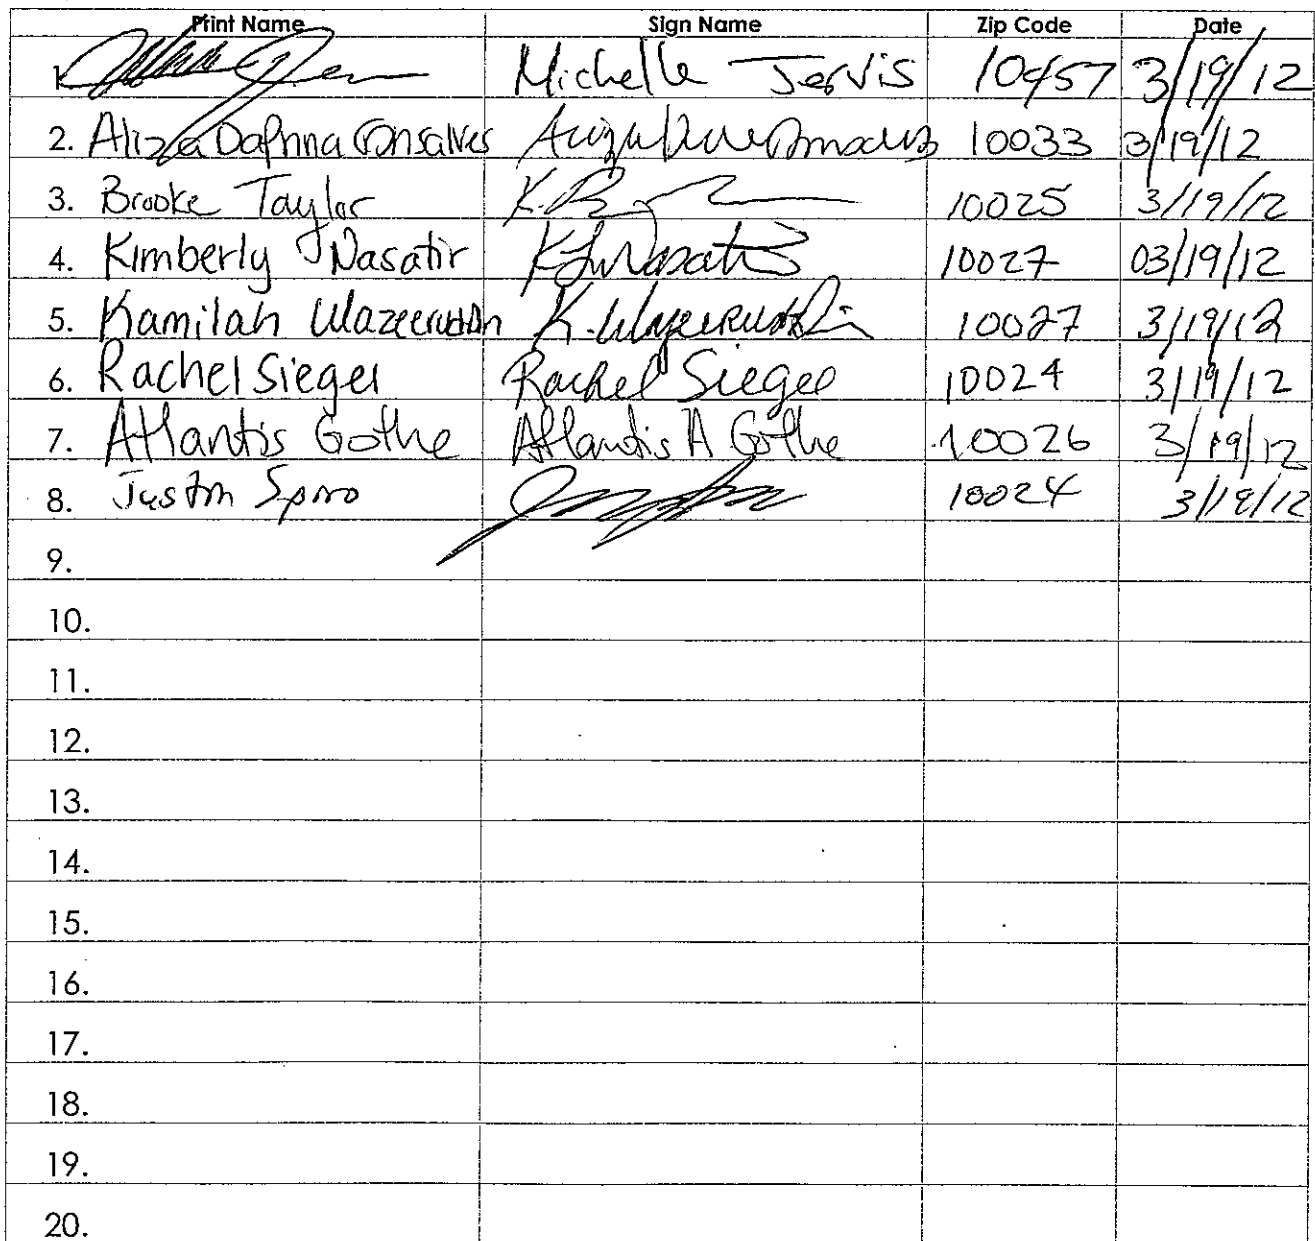 Print Name Sign Name Zip Code Date
1. Michelle Jervis 10457 3/19/12
2. Aliza Daphna Gonsalves 10033 3/19/12
3. Brooke Taylor 10025 3/19/12
4. Kimberly Nasatir 10027 03/19/12
5. Kamilah Wazeeruddin K. Wazeeruddin 10027 3/19/12
6. Rachel Siegel Rachel Siegel 10024 3/19/12
7. Atlantis Gothe Atlantis A Gothe 10026 3/19/12
8. Justin Spiro 10024 3/19/12
9.
10.
11.
12.
13.
14.
15.
16.
17.
18.
19.
20.